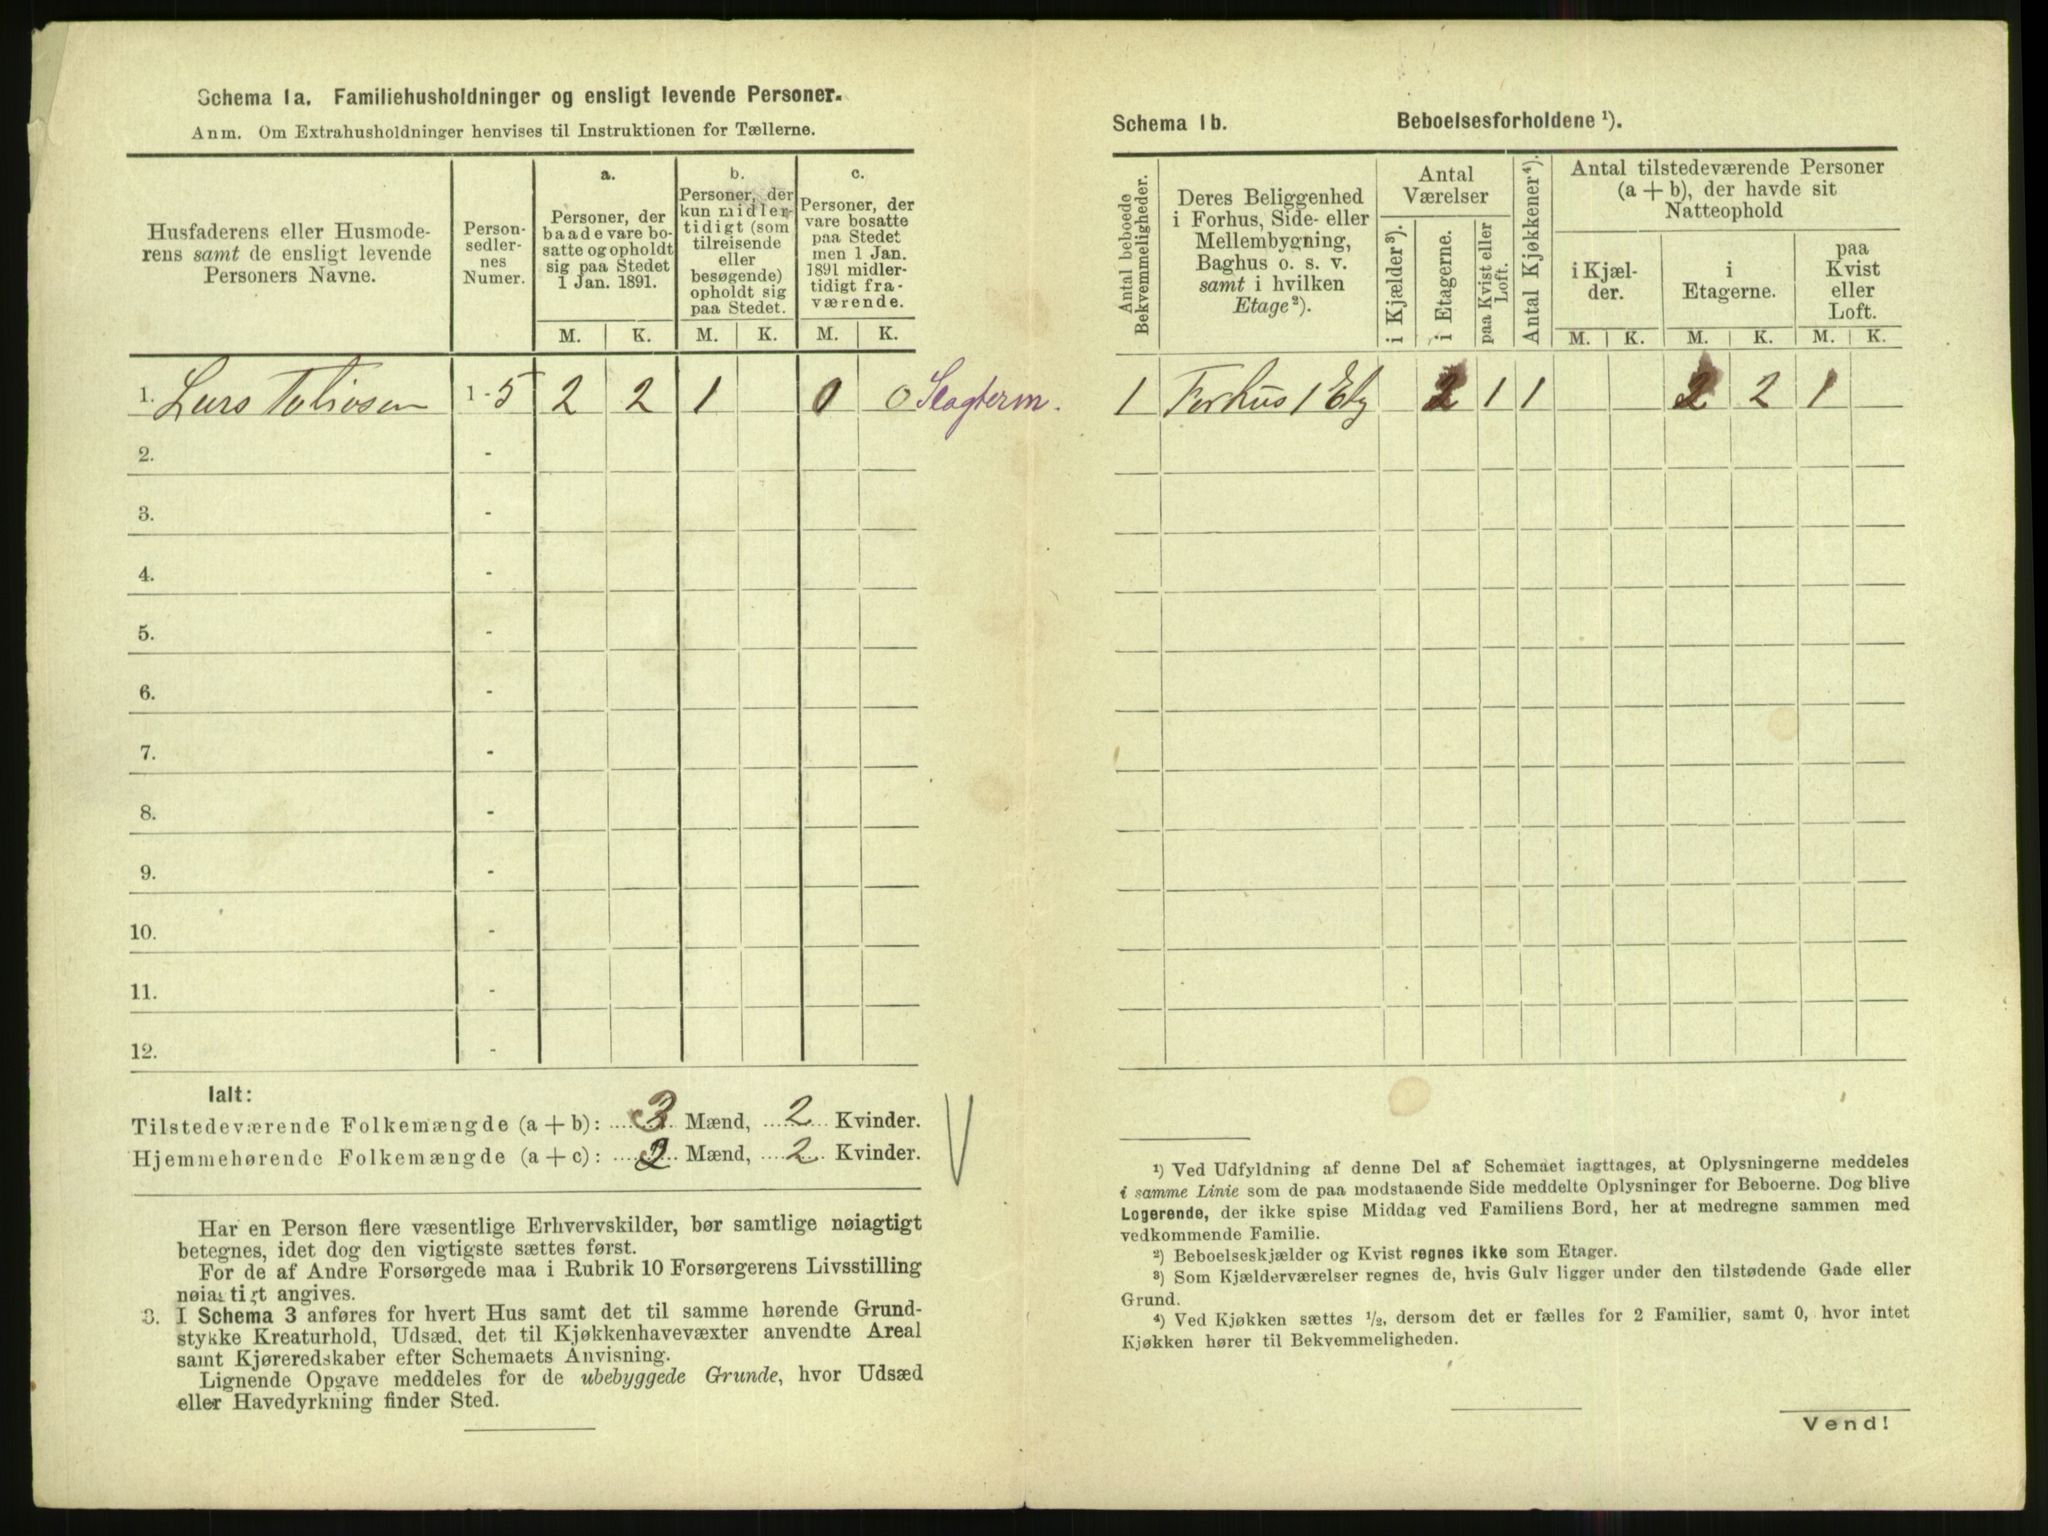 Schema 1a. Familiehusholdninger og ensligt levende Personer.
Anm. Om Extrahusholdninger henvises til Instruktionen for Tællerne.
Husfaderens eller Husmode-
rens samt de ensligt levende
Personers Navne.
Person-
sedler-
nes
Numer.
a.
Personer, der
baade vare bo-
satte og opholdt
sig paa Stedet
1 Jan. 1891.
b.
Personer, der
kun midler-
tidigt (som
tilreisende
eller
besøgende)
opholdt sig
paa Stedet.
c.
Personer, der
vare bosatte
paa Stedet
men 1 Jan.
1891 midler-
tidigt fra-
værende.
M. K. M. K. M. K.
1. Lars Tobiasen 1-5 2 2 1 0 0 Slagterm.
2. -
3. -
4. -
5. -
6. -
7. -
8. -
9. -
10. -
11. -
12. -
Ialt:
Tilstedeværende Folkemængde (a + b): 3 Mænd, 2 Kvinder.
Hjemmehørende Folkemængde (a + c): 2 Mænd, 2 Kvinder.
Har en Person flere væsentlige Erhvervskilder, bør samtlige nøiagtigt
betegnes, idet dog den vigtigste sættes først.
For de af Andre Forsørgede maa i Rubrik 10 Forsørgerens Livsstilling
nøiagtigt angives.
3. I Schema 3 anføres for hvert Hus samt det til samme hørende Grund-
stykke Kreaturhold, Udsæd, det til Kjøkkenhavevæxter anvendte Areal
samt Kjøreredskaber efter Schemaets Anvisning.
Lignende Opgave meddeles for de ubebyggede Grunde, hvor Udsæd
eller Havedyrkning finder Sted.
Schema 1b. Beboelsesforholdene ¹).
Antal beboede
Bekvemmeligheder.
Deres Beliggenhed
i Forhus, Side- eller
Mellembygning,
Baghus o. s. v.
samt i hvilken
Etage²).
Antal
Værelser
i Kjælder³).
i Etagerne.
paa Kvist eller
Loft.
Antal Kjøkkener⁴).
Antal tilstedeværende Personer
(a + b), der havde sit
Natteophold
i Kjæl-
der.
i
Etagerne.
paa
Kvist
eller
Loft.
M. K. M. K. M. K.
1 Forhus 1 Etg 2 1 1 2 2 1
¹) Ved Udfyldning af denne Del af Schemaet iagttages, at Oplysningerne meddeles
i samme Linie som de paa modstaaende Side meddelte Oplysninger for Beboerne. Dog blive
Logerende, der ikke spise Middag ved Familiens Bord, her at medregne sammen med
vedkommende Familie.
²) Beboelseskjælder og Kvist regnes ikke som Etager.
³) Som Kjælderværelser regnes de, hvis Gulv ligger under den tilstødende Gade eller
Grund.
⁴) Ved Kjøkken sættes ½, dersom det er fælles for 2 Familier, samt 0, hvor intet
Kjøkken hører til Bekvemmeligheden.
Vend!